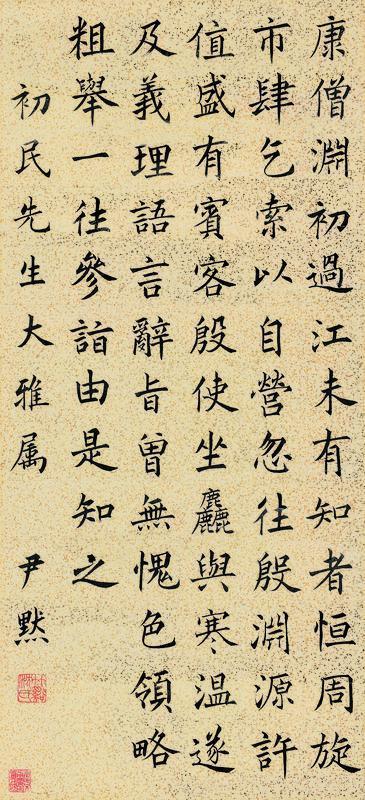 康僧淵初過江未有知者恒周旋
市肆乞索以自營忽往殷淵源許
值盛有賓客殷使坐麤與寒温遂
及義理語言辭旨曾無愧色領略
粗舉一往參詣由是知之
初民先生大雅属 尹默